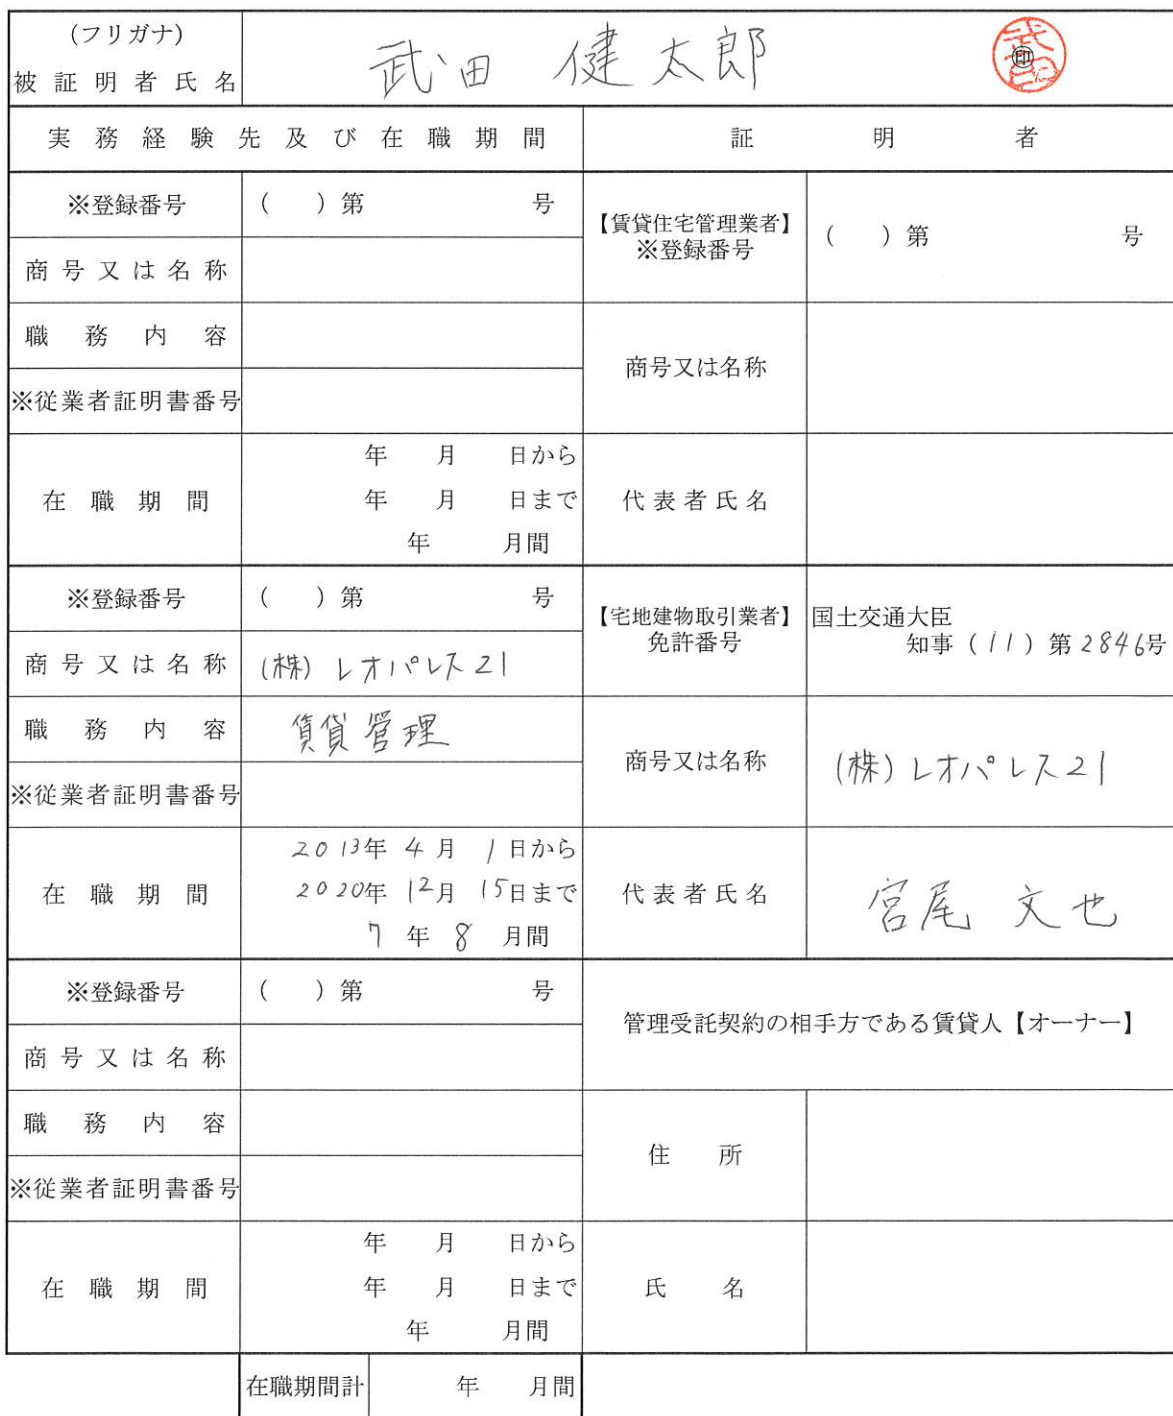 (フリガナ)
被証明者氏名 武田 健太郎 印
実務経験先及び在職期間 証明者
※登録番号 ( ) 第 号
【賃貸住宅管理業者】
※登録番号 ( ) 第 号
商号又は名称
職務内容
商号又は名称
※従業者証明書番号
在職期間
年 月 日から
年 月 日まで
年 月間
代表者氏名
※登録番号 ( ) 第 号
【宅地建物取引業者】
免許番号
国土交通大臣
知事 (11) 第 2846号
商号又は名称 (株) レオパレス21
職務内容 賃貸管理
商号又は名称 (株) レオパレス21
※従業者証明書番号
在職期間
2013年 4月 1日から
2020年 12月 15日まで
7年 8月間
代表者氏名 宮尾 文也
※登録番号 ( ) 第 号
管理受託契約の相手方である賃貸人【オーナー】
商号又は名称
職務内容
住所
※従業者証明書番号
在職期間
年 月 日から
年 月 日まで
年 月間
氏名
在職期間計 年 月間